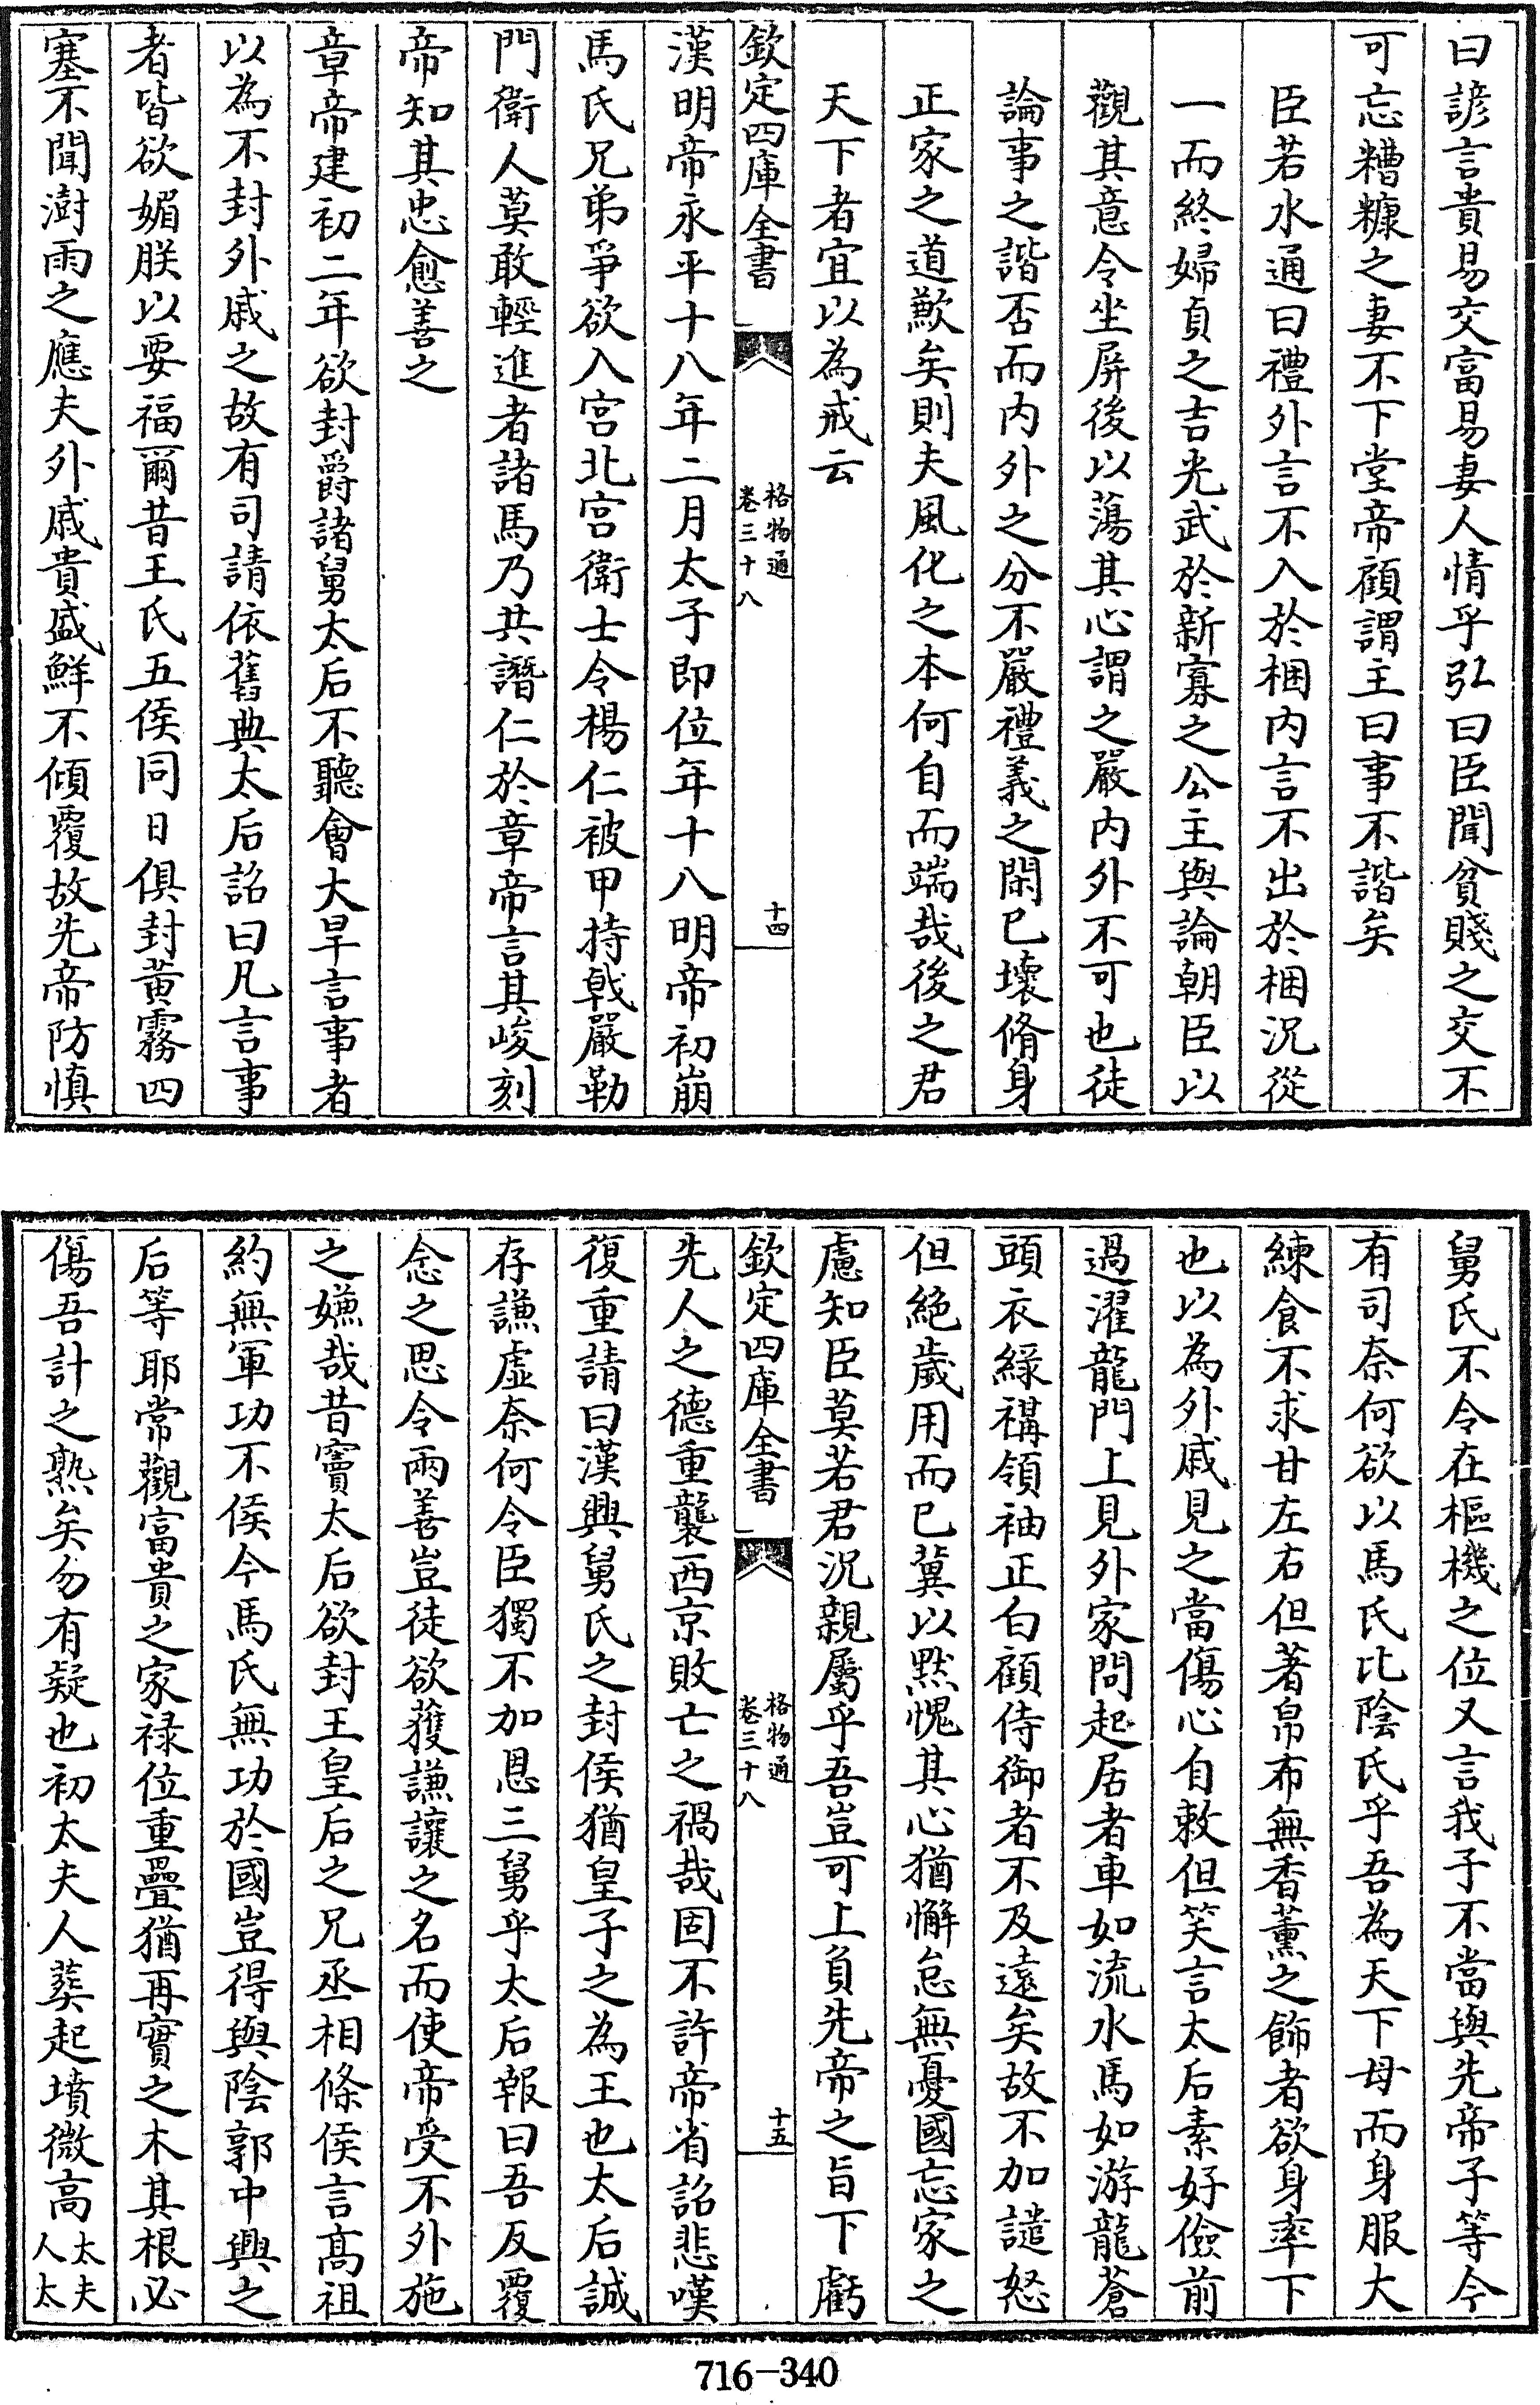 曰諺言貴易交富易妻人情乎弘曰臣聞貧賤之交不
可忘糟糠之妻不下堂帝顧謂主曰事不諧矣
臣若水通曰禮外言不入於梱内言不出於梱況從
一而終婦貞之吉光武於新寡之公主與論朝臣以
觀其意令坐屏後以蕩其心謂之嚴内外不可也徒
論事之諧否而内外之分不嚴禮義之閑已壞脩身
正家之道歉矣則夫風化之本何自而端哉後之君
天下者宜以為戒云
欽定四庫全書
格物通
卷三十八
十四
漢明帝永平十八年二月太子即位年十八明帝初崩
馬氏兄弟爭欲入宫北宫衛士令楊仁被甲持戟嚴勒
門衛人莫敢輕進者諸馬乃共譖仁於章帝言其峻刻
帝知其忠愈善之
章帝建初二年欲封爵諸舅太后不聽會大旱言事者
以為不封外戚之故有司請依舊典太后詔曰凡言事
者皆欲媚朕以要福爾昔王氏五侯同日俱封黄霧四
塞不聞澍雨之應夫外戚貴盛鮮不傾覆故先帝防慎
舅氏不令在樞機之位又言我子不當與先帝子等今
有司奈何欲以馬氏比陰氏乎吾為天下母而身服大
練食不求甘左右但著帛布無香薰之飾者欲身率下
也以為外戚見之當傷心自敕但笑言太后素好儉前
過濯龍門上見外家問起居者車如流水馬如游龍蒼
頭衣緑褠領袖正白顧侍御者不及遠矣故不加譴怒
但絶歲用而已冀以黙愧其心猶懈怠無憂國忘家之
慮知臣莫若君況親屬乎吾豈可上負先帝之旨下虧
欽定四庫全書
格物通
卷三十八
十五
先人之德重襲西京敗亡之禍哉固不許帝省詔悲嘆
復重請曰漢興舅氏之封侯猶皇子之為王也太后誠
存謙虚奈何令臣獨不加恩三舅乎太后報曰吾反覆
念之思令兩善豈徒欲獲謙讓之名而使帝受不外施
之嫌哉昔竇太后欲封王皇后之兄丞相條侯言髙祖
約無軍功不侯今馬氏無功於國豈得與陰郭中興之
后等耶常觀富貴之家禄位重疊猶再實之木其根必
傷吾計之熟矣勿有疑也初太夫人葬起墳微高太夫
人太
716-340